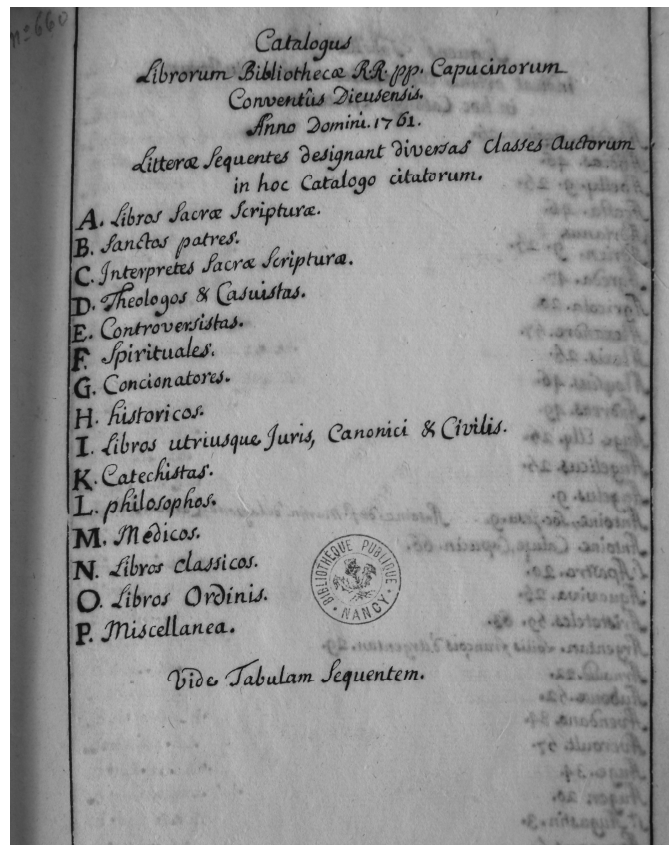 nº 660
Catalogus
Librorum Bibliothecæ RR. pp. Capucinorum
Conventûs Dieusensis.
Anno Domini. 1761.
Litteræ Sequentes designant diversas Classes Auctorum
in hoc Catalogo citatorum.
A. Libros Sacræ Scripturæ.
B. Sanctos patres.
C. Interpretes Sacræ Scripturæ.
D. Theologos & Casuistas.
E. Controversistas.
F. Spirituales.
G. Concionatores.
H. historicos.
I. Libros utriusque Juris, Canonici & Civilis.
K. Catechistas.
L. philosophos.
M. Medicos.
N. Libros classicos.
O. Libros Ordinis.
P. Miscellanea.
BIBLIOTHÈQUE PUBLIQUE
NANCY
Vide Tabulam Sequentem.